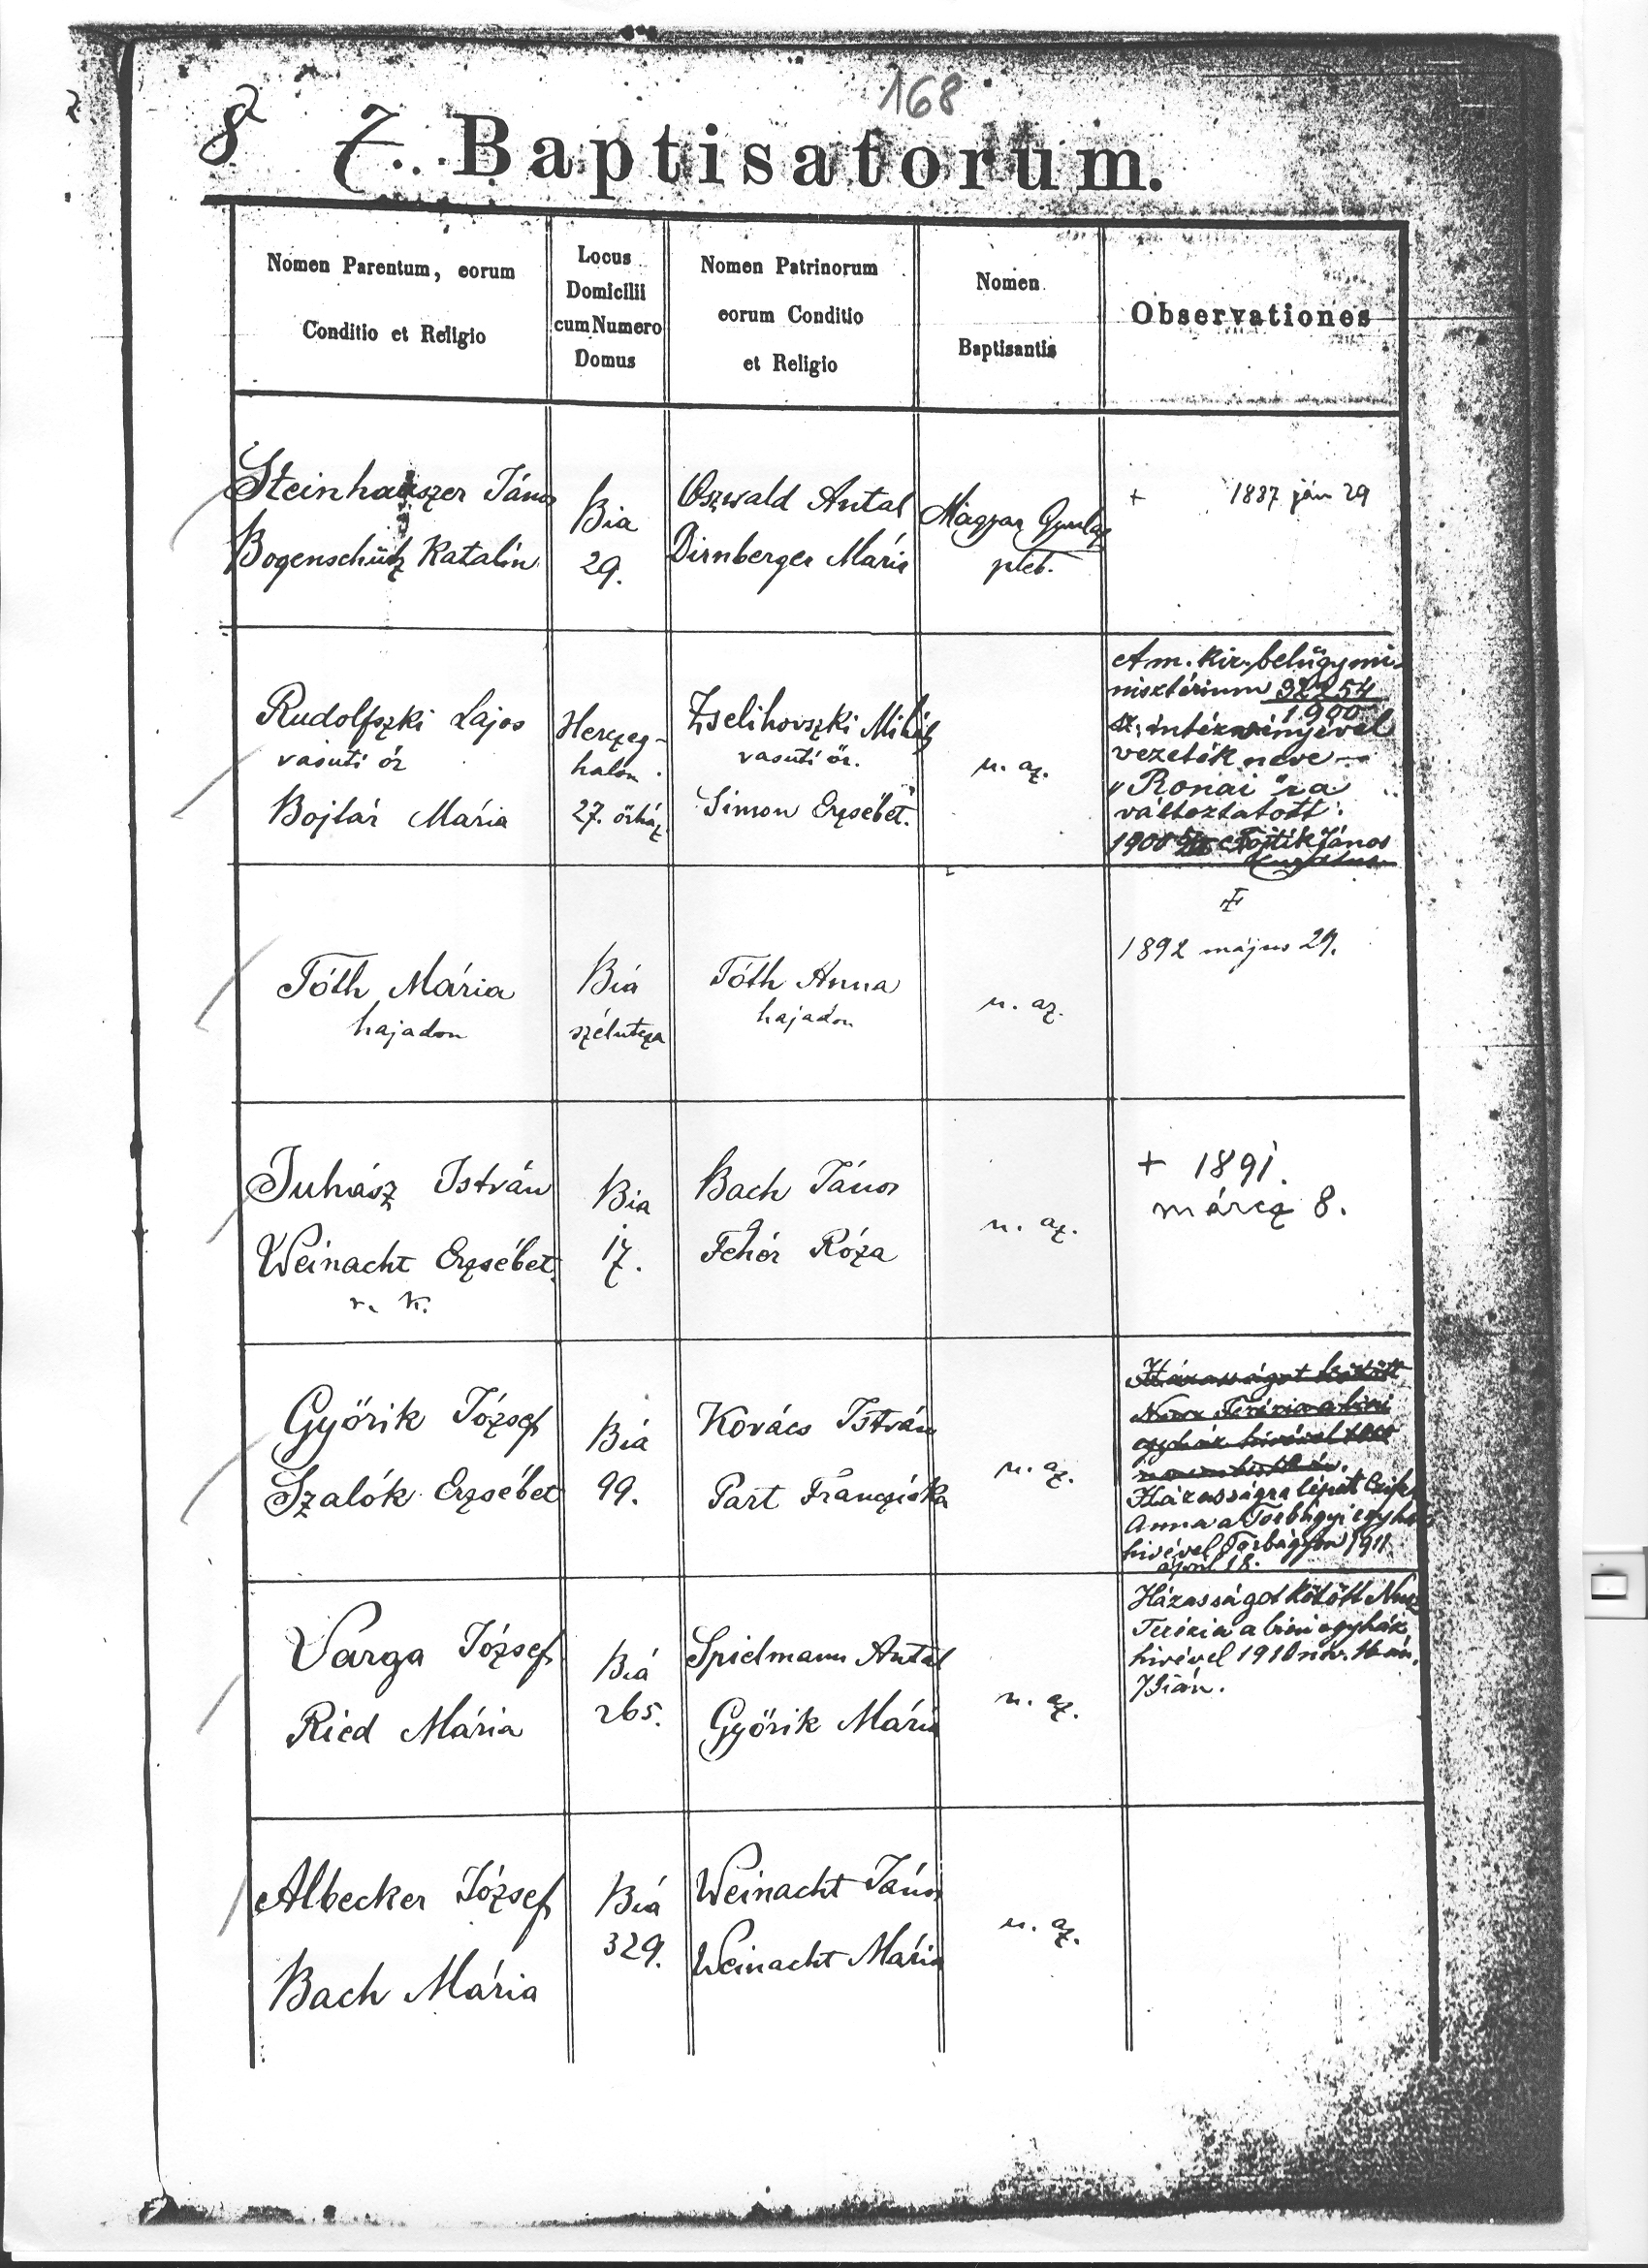 168
8 7. Baptisatorum.
Nomen Parentum, eorum
Conditio et Religio
Locus
Domicilii
cum Numero
Domus
Nomen Patrinorum
eorum Conditio
et Religio
Nomen
Baptisantis
Observationes
Steinhauszer János
Bogenschütz Katalin
Bia
29.
Oszwald Antal
Dirnberger Mária
Magyar Gyula
pléb.
+ 1887 ján 29
Rudolfszki Lajos
vasuti őr
Bojtár Mária
Herczeg-
halom.
27. őrház
Zselihovszki Mihály
vasuti őr.
Simon Erzsébet.
u. az.
A m. kir. belügymi-
nisztérium 92254
1900
sz. intézvényével
vezeték neve
"Ronai" ra
változtatott.
1900 Fojtik János
Tóth Mária
hajadon
Bia
szélutcza
Tóth Anna
hajadon
u. az.
+
1892 május 29.
Juhász István
Weinacht Erzsébet
r. k.
Bia
17.
Bach János
Fehér Róza
u. az.
+ 1891.
márcz 8.
Győrik József
Szalók Erzsébet
Bia
99.
Kovács István
Part Francziska
u. az.
Házasságot kötött
egyház hivével
Házasságra lépett
Anna a Torbágyi egyház
hivével Torbágyon 1911
április 18.
Varga József
Ried Mária
Bia
265.
Spielmann Antal
Győrik Mária
u. az.
Házasságot kötött
Terézia a biai egyház
hivével 1910 nov.
Bián.
Albecker József
Bach Mária
Bia
329.
Weinacht János
Weinacht Mária
u. az.